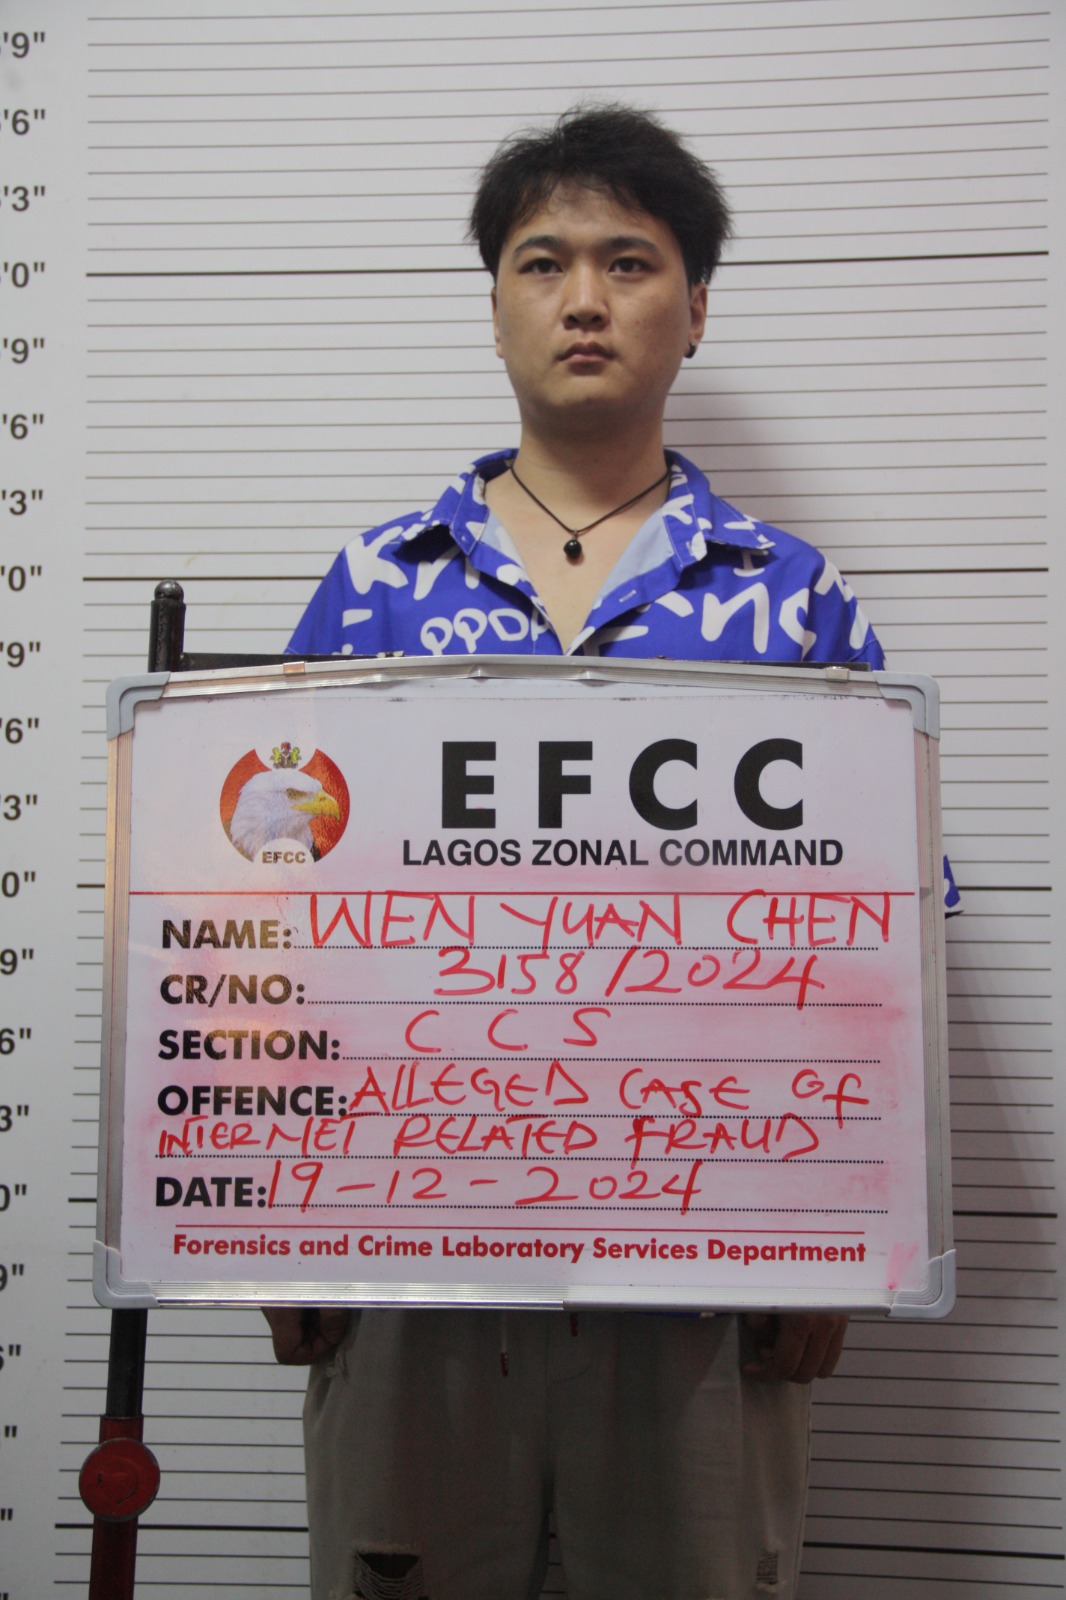 EFCC
EFCC
LAGOS ZONAL COMMAND
NAME: WEN YUAN CHEN
CR/NO: 3158/2024
SECTION: C C S
OFFENCE: ALLEGED CASE OF
INTERNET RELATED FRAUD
DATE: 19-12-2024
Forensics and Crime Laboratory Services Department